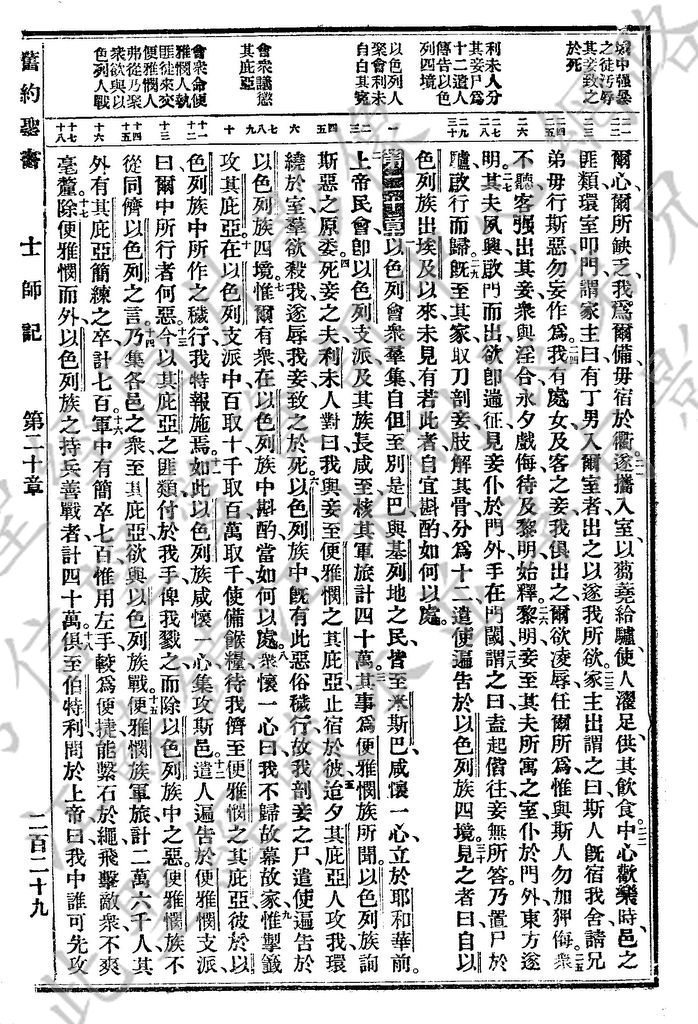 城中强暴
之徒汚辱
其妾致之
於死
利未人分
其妾尸爲
十二遺人
傳告以色
列四境
以色列人
聚會利未
自白其寃
會衆議懲
其庇亞
會衆命便
雅憫人執
匪徒來交
便雅憫人
弗從乃聚
衆欲與以
色列人戰
爾心爾所缺乏我爲爾備毋宿於衢遂攜入室以蒭蕘給驢使人濯足供其飮食中心歡樂時邑之
匪類環室叩門謂家主曰有丁男入爾室者出之以遂我所欲家主出謂之曰斯人旣宿我舍請兄
弟毋行斯惡勿妄作爲我有處女及客之妾我俱出之爾欲凌辱任爾所爲惟與斯人勿加狎侮衆
不聽客强出其妾衆與淫合永夕戲侮待及黎明始釋黎明妾至其夫所寓之室仆於門外東方遂
明其夫夙興啟門而出欲卽遄征見妾仆於門外手在門閾謂之曰盍起偕往妾無所答乃置尸於
驢啟行而歸旣至其家取刀剖妾肢解其骨分爲十二遣使遍告於以色列族四境見之者曰自以
色列族出埃及以來未見有若此者自宜斟酌如何以處
以色列會衆羣集自但至別是巴與基列地之民皆至米斯巴咸懷一心立於耶和華前
上帝民會卽以色列支派及其族長咸至核其軍旅計四十萬其事爲便雅憫族所聞以色列族詢
斯惡之原委死妾之夫利未人對曰我與妾至便雅憫之其庇亞止宿於彼迨夕其庇亞人攻我環
繞於室羣欲殺我遂辱我妾致之於死以色列族中旣有此惡俗穢行故我剖妾之尸遣使遍告於
以色列族四境惟爾有衆在以色列族中斟酌當如何以處衆懷一心曰我不歸故幕故家惟掣籤
攻其庇亞在以色列支派中百取十千取百萬取千使備餱糧待我儕至便雅憫之其庇亞彼於以
色列族中所作之穢行我特報施焉如此以色列族咸懷一心集攻斯邑遣人遍告於便雅憫支派
曰爾中所行者何惡今以其庇亞之匪類付於我手俾我戮之而除以色列族中之惡便雅憫族不
從同儕以色列之言乃集各邑之衆至其庇亞欲與以色列族戰便雅憫族軍旅計二萬六千人其
外有其庇亞簡練之卒計七百軍中有簡卒七百惟用左手較爲便捷能繫石於繩飛擊敵衆不爽
毫釐除便雅憫而外以色列族之持兵善戰者計四十萬俱至伯特利問於上帝曰我中誰可先攻
舊約聖書 士師記 第二十章 二百二十九